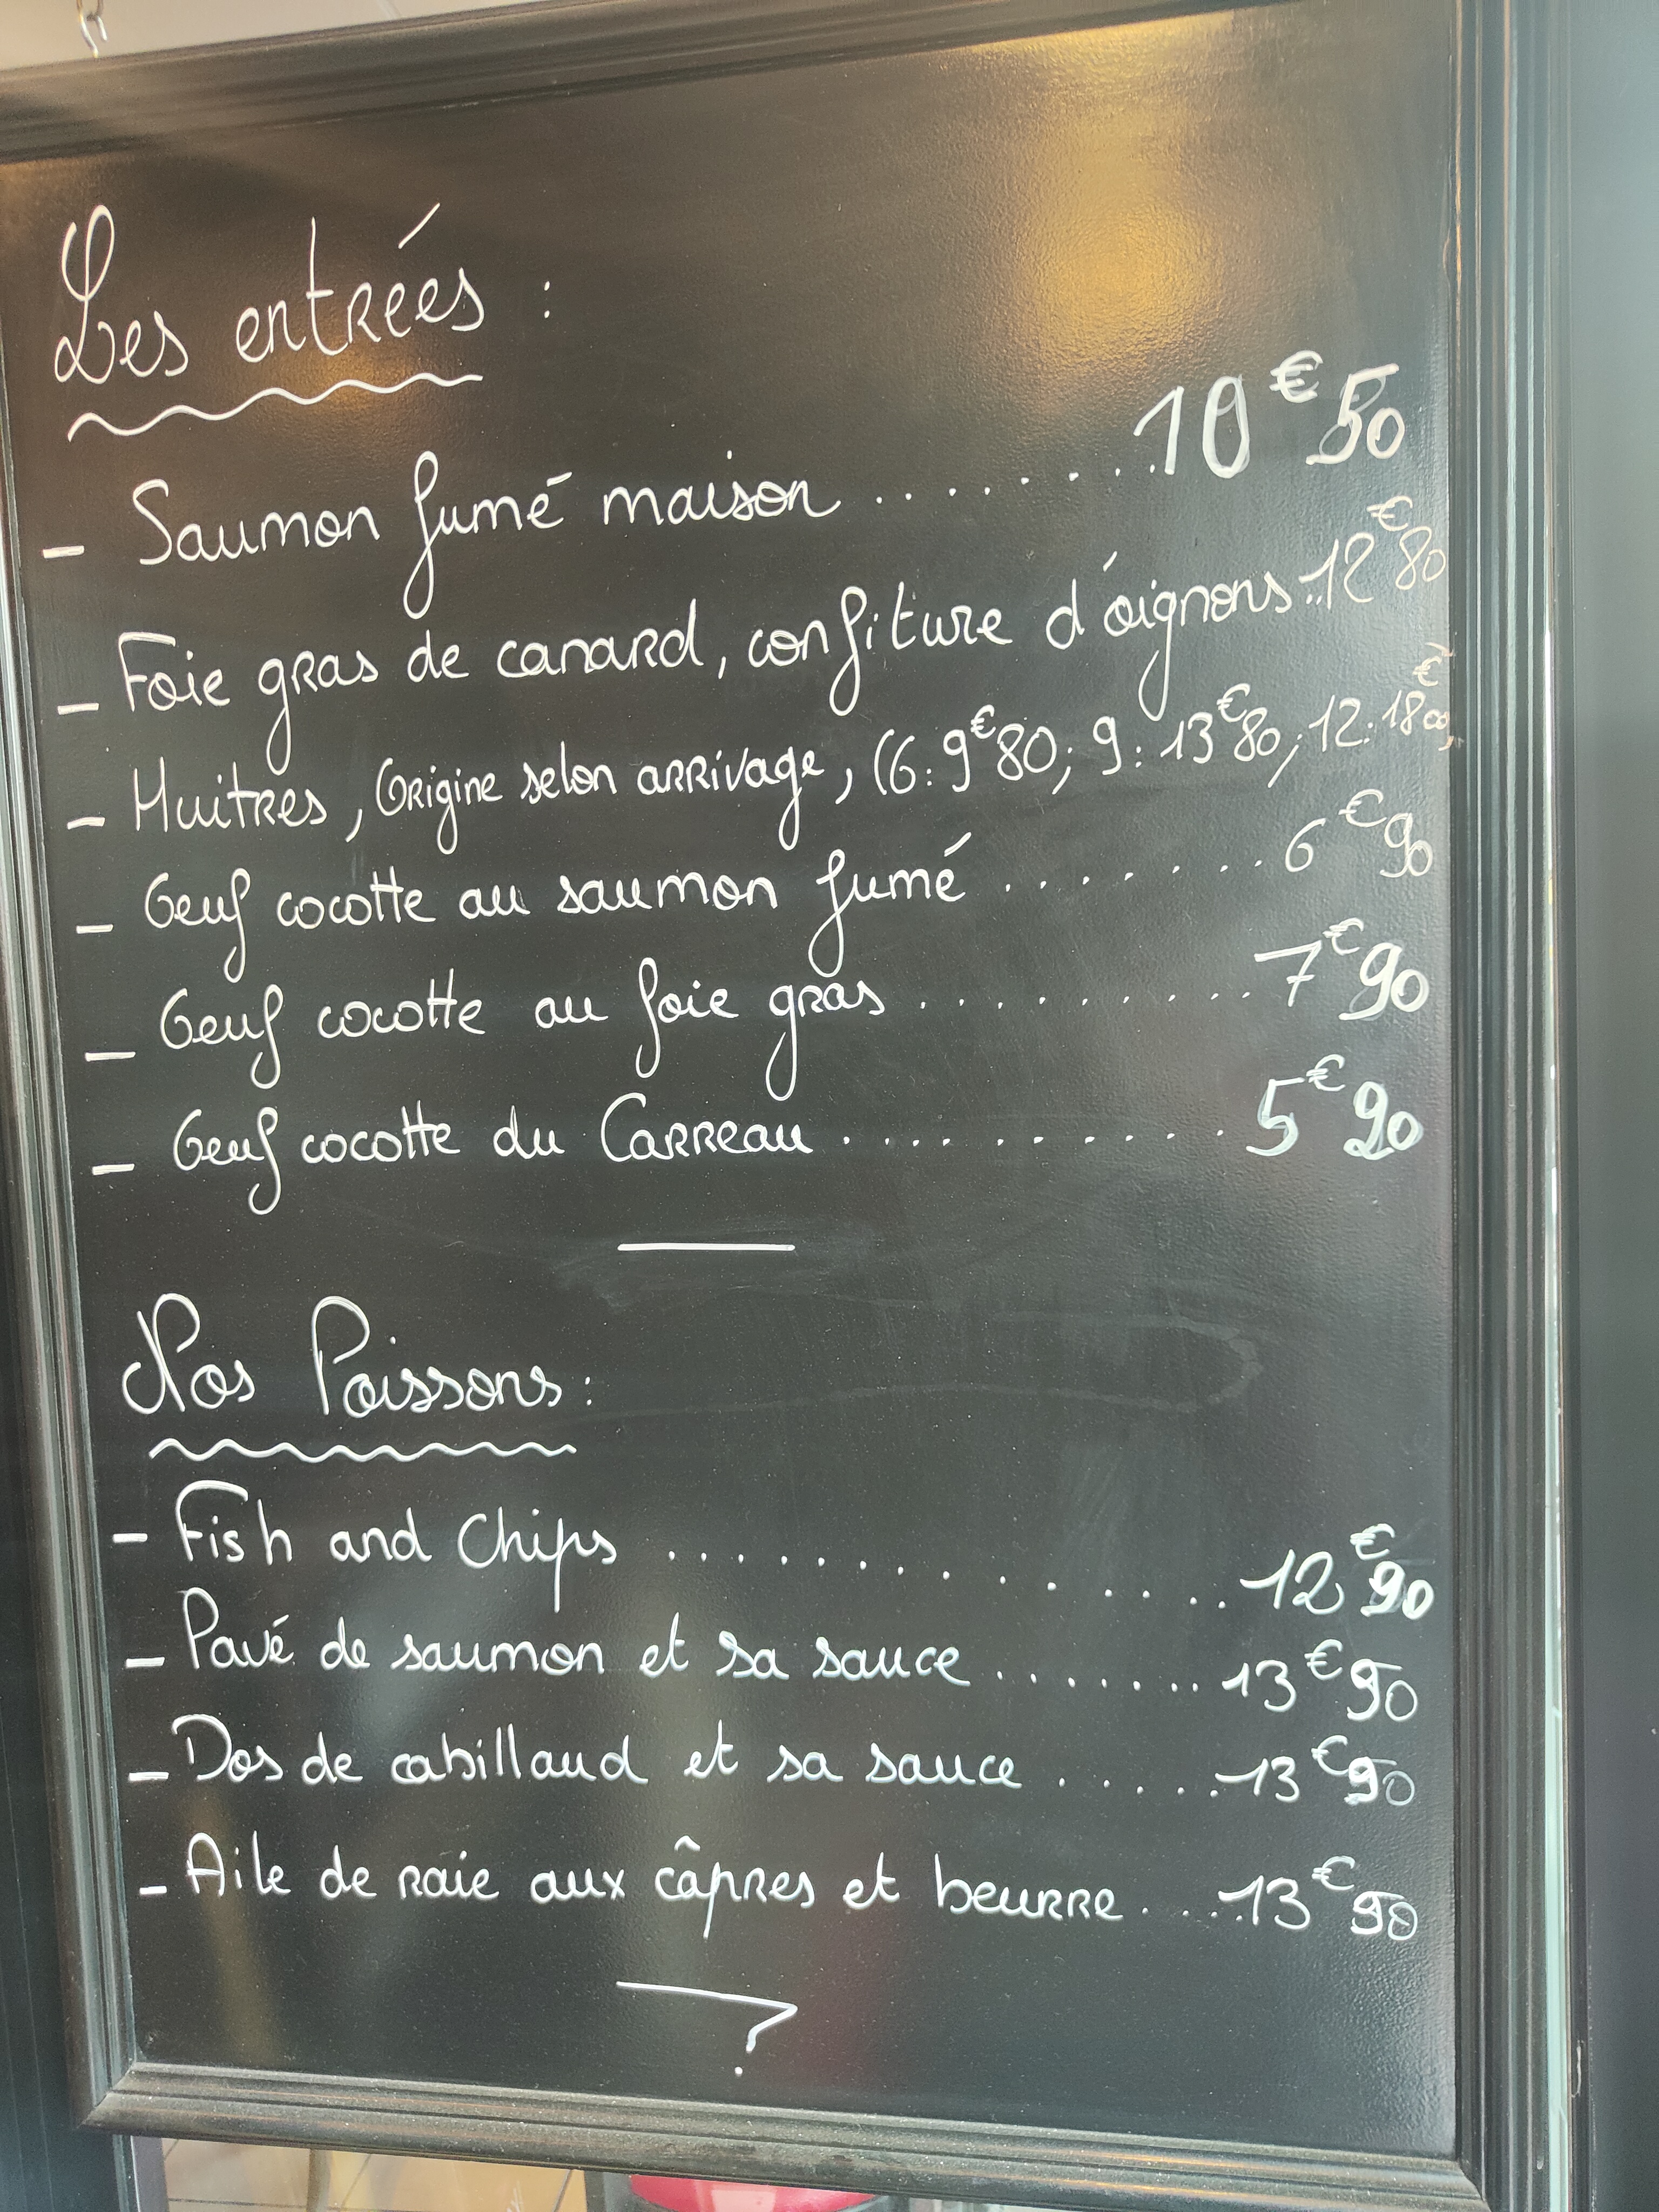 Les entrées :
- Saumon fumé maison ........ 10€50
- Foie gras de canard, confiture d'oignons .. 12€80
- Huitres, Origine selon arrivage, (6: 9€80; 9: 13€80; 12: 18€00)
- Oeuf cocotte au saumon fumé ........ 6€90
- Oeuf cocotte au foie gras ........... 7€90
- Oeuf cocotte du Carreau ........... 5€90
Nos Poissons :
- Fish and Chips ............. 12€90
- Pavé de saumon et sa sauce ........ 13€90
- Dos de cabillaud et sa sauce ...... 13€90
- Aile de raie aux câpres et beurre ..... 13€90